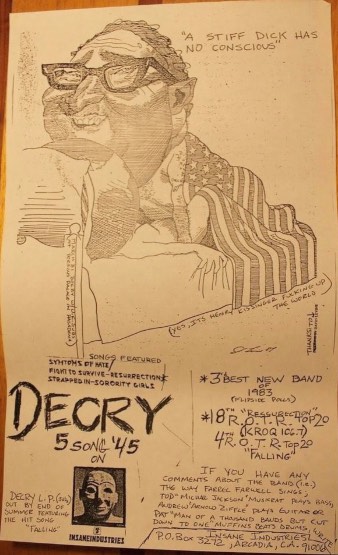 "A STIFF DICK HAS
NO CONSCIOUS"
(YES, ITS HENRY KISSINGER FUCKING UP
THE WORLD
THANKS TO
SONGS FEATURED
SYMPTOMS OF HATE
FIGHT TO SURVIVE-RESURRECTION
STRAPPED-IN-SORORITY GIRLS
DECRY
5 SONG '45
ON
DECRY L.P.
OUT BY END OF
SUMMER FEATURING
THE HIT SONG
"FALLING"
INSANE INDUSTRIES
*3RD BEST NEW BAND
OF
1983
(FLIPSIDE POLLS)
*18TH "RESSURECTION"
R.O.T.R. TOP 20
(KROQ 106.7)
4TH R.O.T.R. TOP 20
"FALLING"
IF YOU HAVE ANY
COMMENTS ABOUT THE BAND (i.e.)
THE WAY FARREL FARWELL SINGS,
TODD "MICHAE JACKSON" MUSCRAT PLAYS BASS,
ANDREW ARNOLD ZIFFLE PLAYS GUITAR OR
PAT "MAN OF A THOUSAND BANDS BUT CUT
DOWN TO ONE" MUFFINS BEATS DRUMS,
INSANE INDUSTRIES
P.O. BOX 3272, ARCADIA, CA. 91006